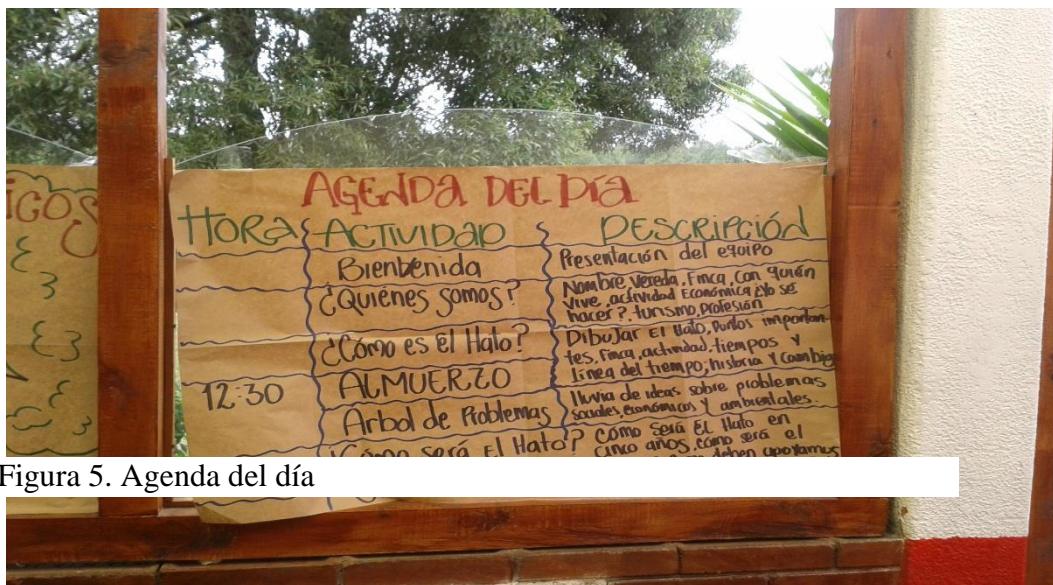 ICOS
AGENDA DEL DÍA
HORA ACTIVIDAD DESCRIPCIÓN
Bienvenida Presentación del equipo
¿Quiénes somos? Nombre Vereda, Finca, con quién
vive, actividad Económica ¿Yo sé
hacer?, turismo, Profesión
¿Cómo es El Hato? Dibujar El Hato, Puntos importan-
tes, Finca, actividad, tiempos y
línea del tiempo, historia y cambios
12:30 ALMUERZO
Arbol de Problemas lluvia de ideas sobre problemas
sociales, económicos y ambientales.
¿Cómo será El Hato? Cómo será El Hato en
cinco años, cómo será el
deben apoyarnos
Figura 5. Agenda del día